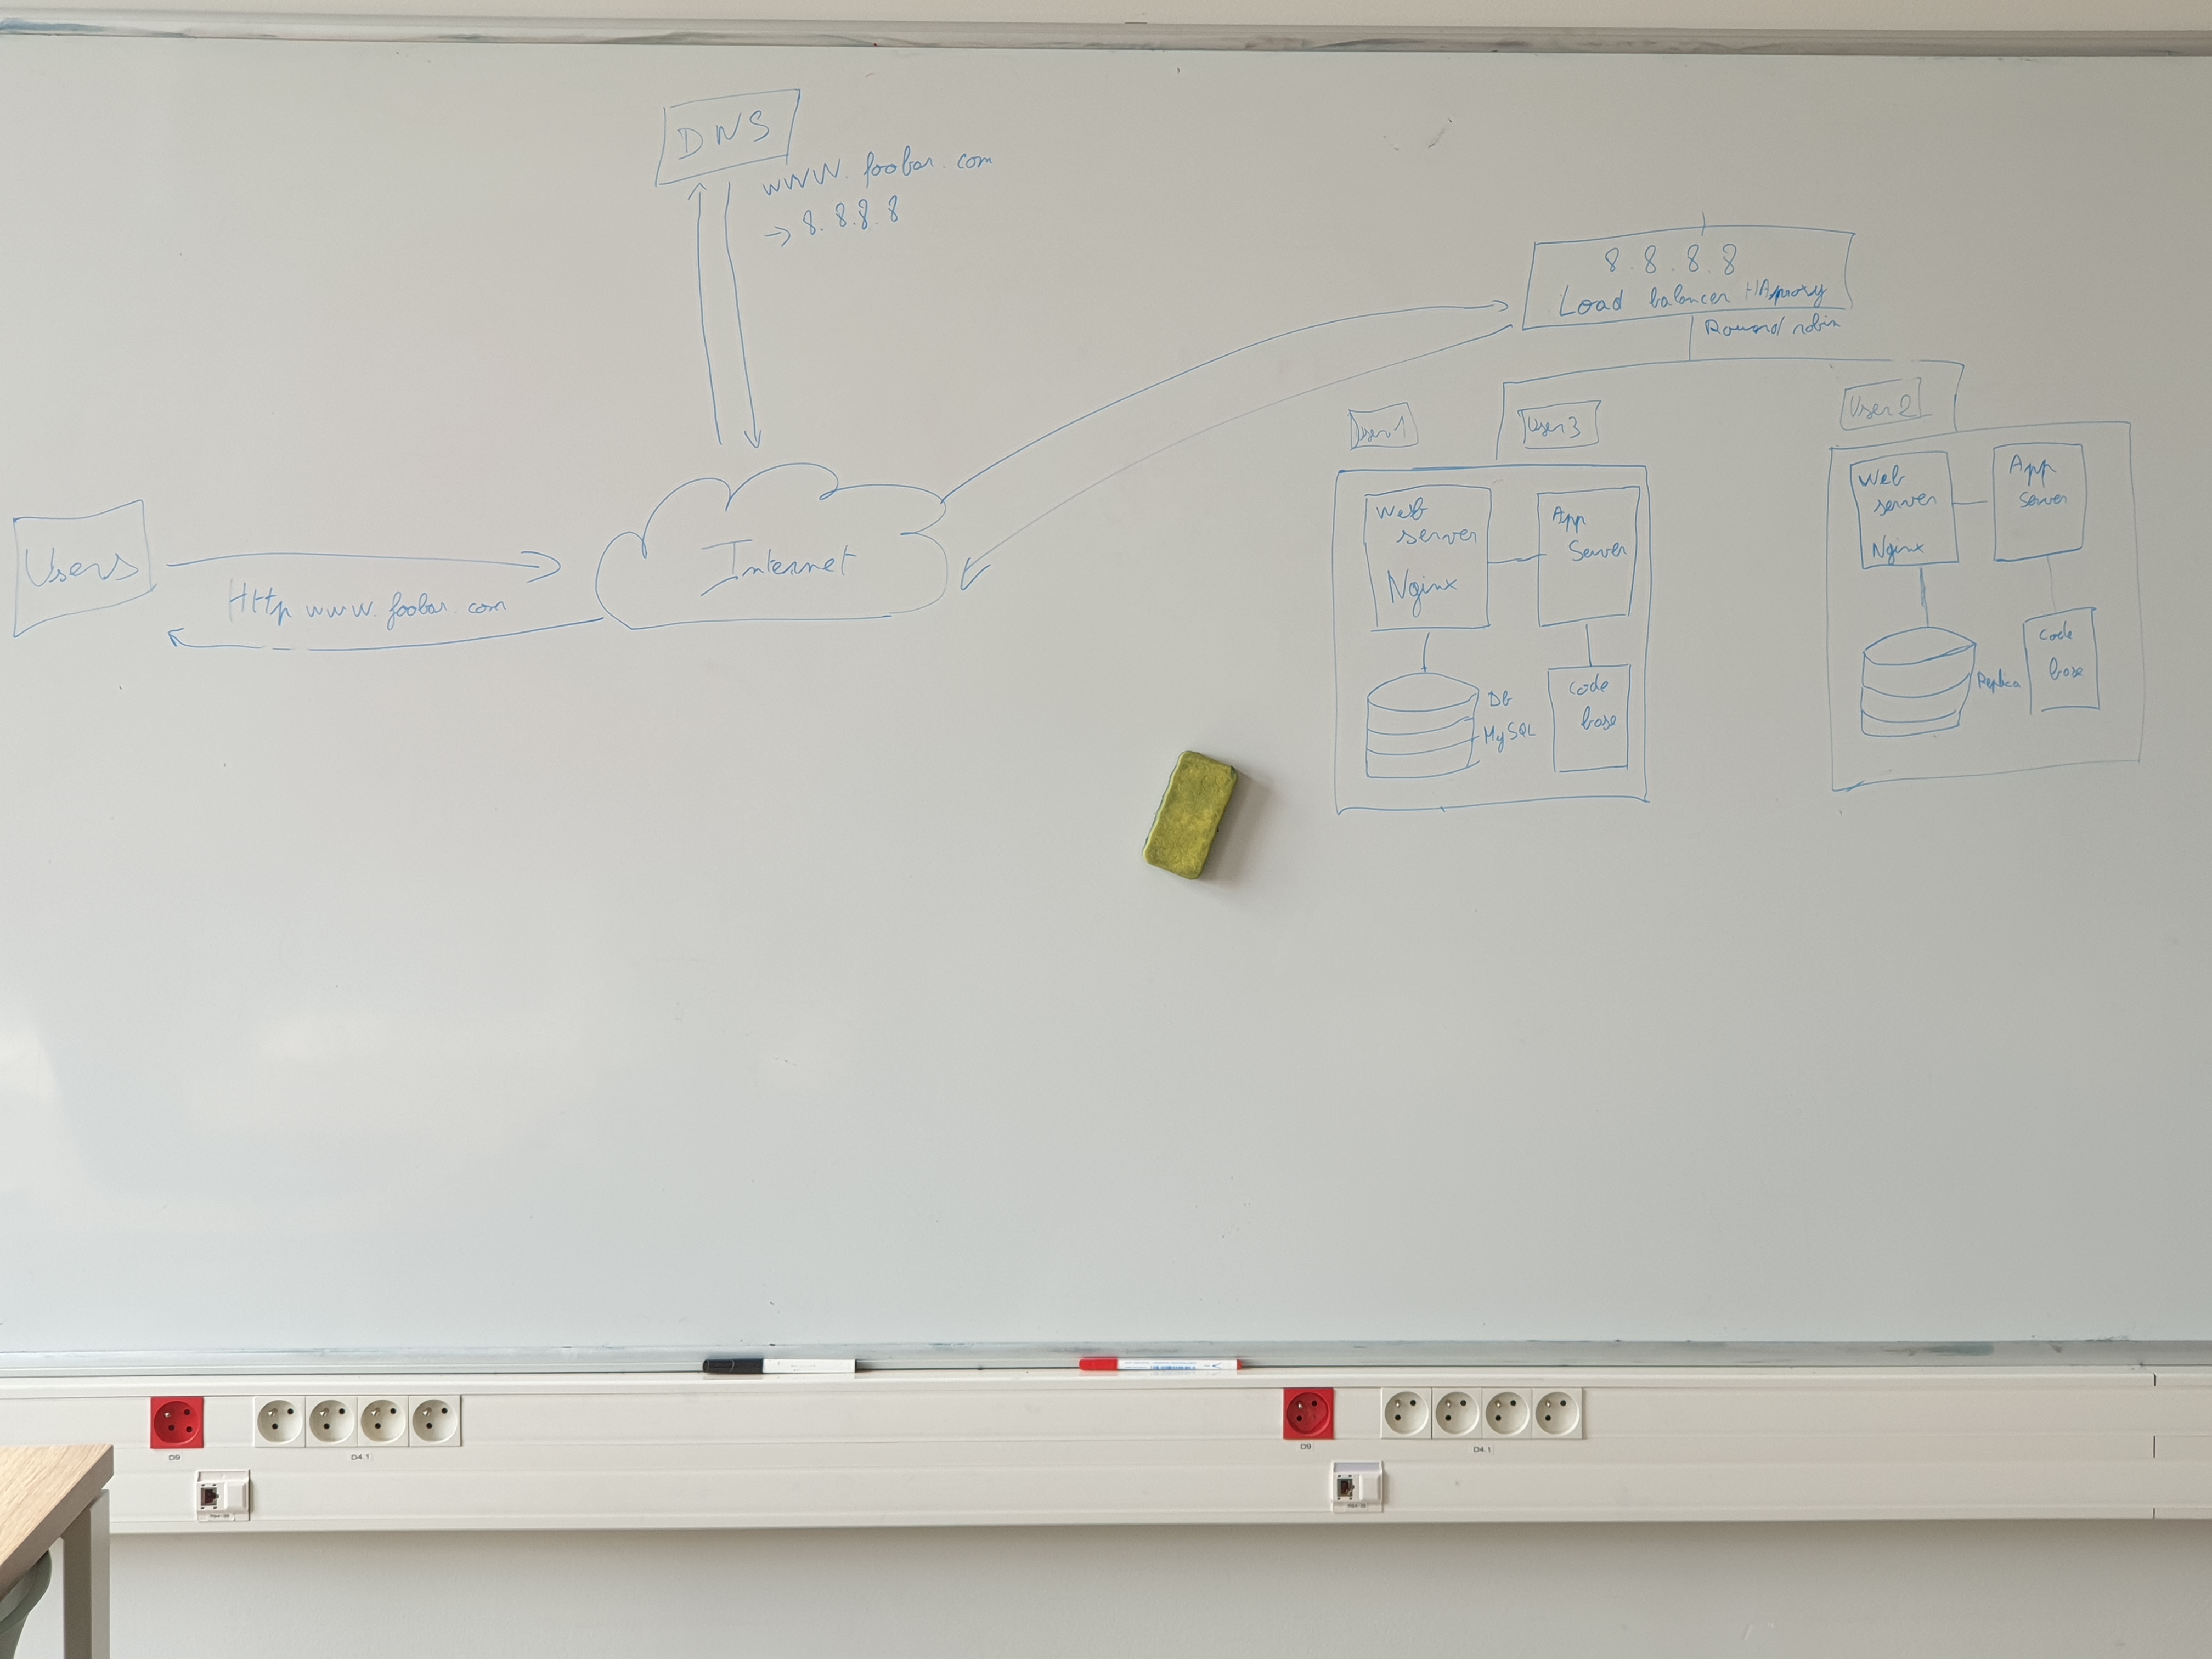 DNS
www.foobar.com
→ 8.8.8.8
Users
Http www.foobar.com
Internet
8.8.8.8
Load balancer HAproxy
Round robin
User 1
User 3
User 2
Web
server
Nginx
App
Server
Db
MySQL
Code
base
Web
server
Nginx
App
Server
Replica
Code
base
D9
D4.1
D9
D4.1